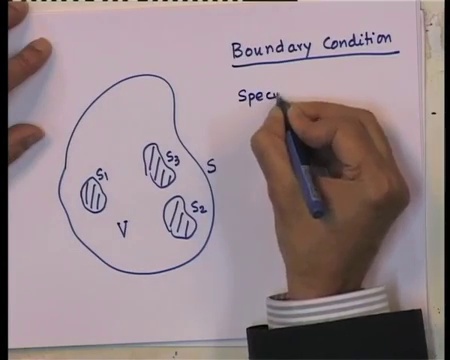 Boundary Condition
Spec
S1
S3
S
S2
V